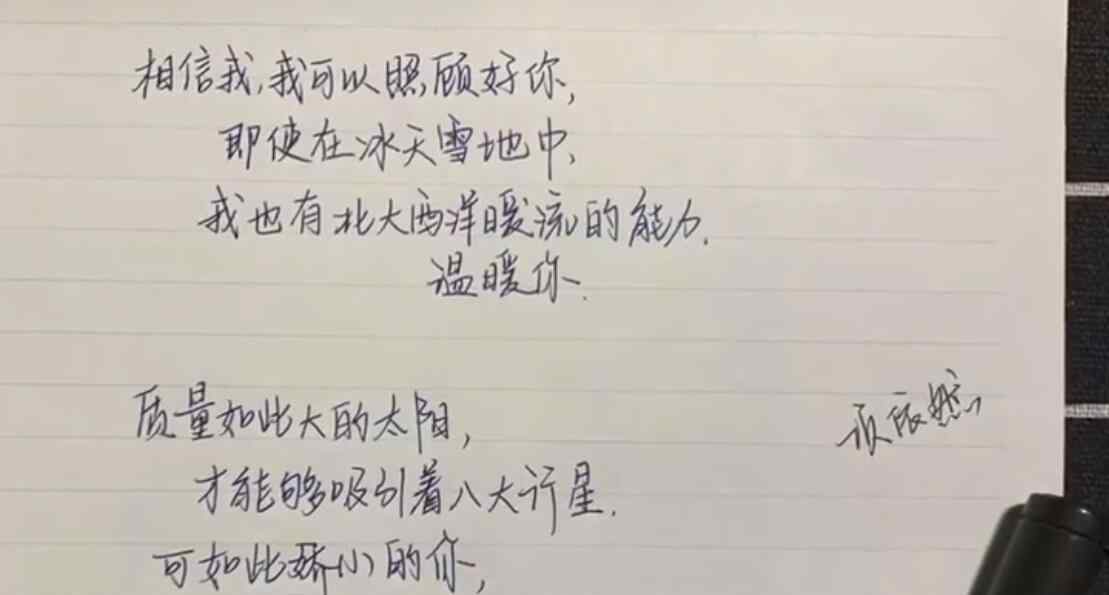 相信我,我可以照顾好你,
即使在冰天雪地中,
我也有北大西洋暖流的能力.
温暖你.
质量如此大的太阳,
才能够吸引着八大行星.
可如此娇小的你,